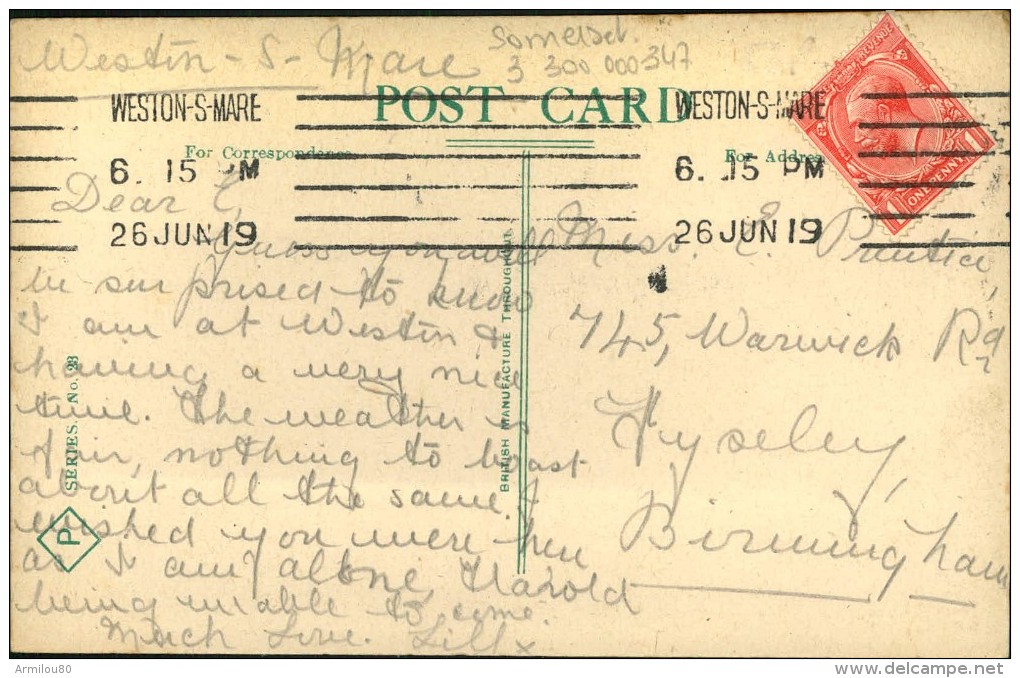 Westin - S - Mare
Somerset.
3 300 000 347
POST CARD
WESTON-S-MARE
6. 15 PM
26 JUN 19
WESTON-S-MARE
6. 15 PM
26 JUN 19
REVENUE
1 ONE PENNY 1
For Correspondence
For Address
Dear E,
Guess you will
be surprised to know
I am at Westin &
having a very nice
time. The weather is
fair, nothing to boast
about all the same. I
wished you were here
as I am alone, Harold
being unable to come.
Much Love. Lill x
SERIES. No. 23
P
BRITISH MANUFACTURE THROUGHOUT.
Miss. E. Prentice,
745, Warwick Rd,
Tyseley,
Birmingham
Armilou80
delcampe.net